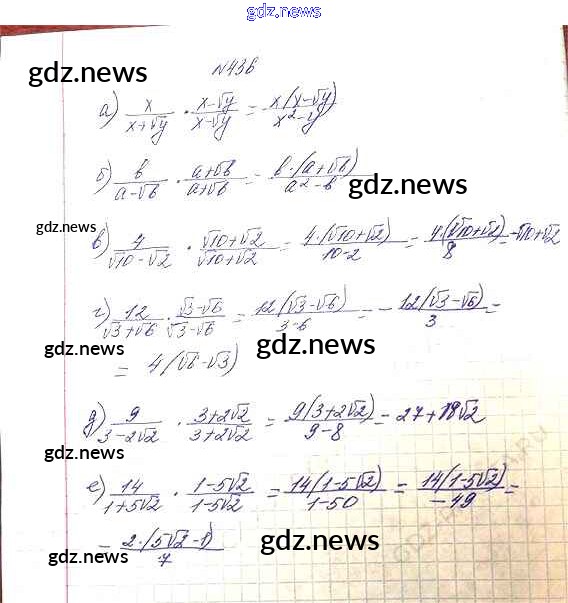 gdz.news
N436
gdz.news
а) x/(x+√y) · (x-√y)/(x-√y) = x(x-√y)/(x²-y)
б) b/(a-√b) · (a+√b)/(a+√b) = b·(a+√b)/(a²-b)
gdz.news
gdz.news
в) 4/(√10-√2) · (√10+√2)/(√10+√2) = 4·(√10+√2)/(10-2) = 4·(√10+√2)/8 = √10+√2
г) 12/(√3+√6) · (√3-√6)/(√3-√6) = 12(√3-√6)/(3-6) = - 12(√3-√6)/3 =
gdz.news gdz.news
= 4(√6-√3)
д) 9/(3-2√2) · (3+2√2)/(3+2√2) = 9(3+2√2)/(9-8) = 27+18√2
gdz.news
е) 14/(1+5√2) · (1-5√2)/(1-5√2) = 14(1-5√2)/(1-50) = 14(1-5√2)/(-49) =
= 2·(5√2-1)/7
gdz.news gdz.news